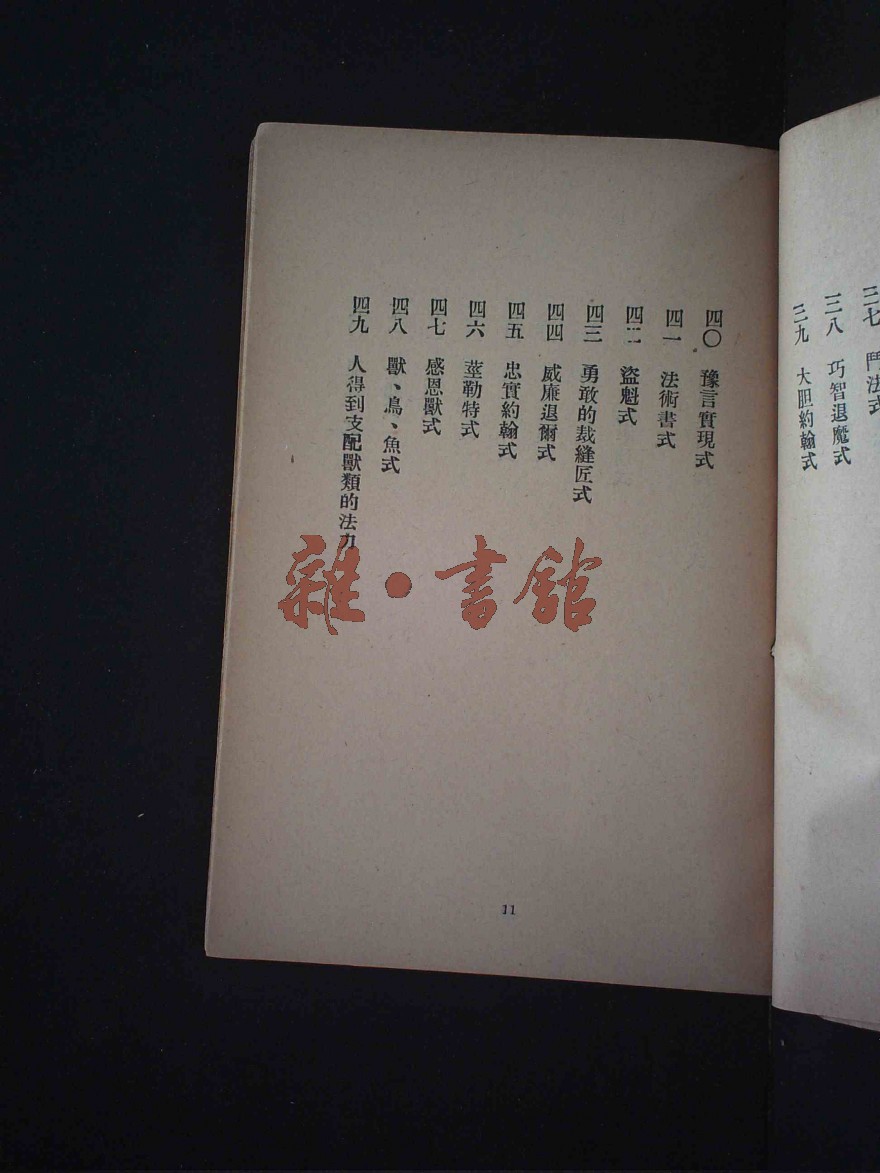 三七 鬥法式
三八 巧智退魔式
三九 大胆約翰式
四〇 豫言實現式
四一 法術書式
四二 盜魁式
四三 勇敢的裁縫匠式
四四 威廉退爾式
四五 忠實約翰式
四六 莖勒特式
四七 感恩獸式
四八 獸、鳥、魚式
四九 人得到支配獸類的法力
雜·書館
11